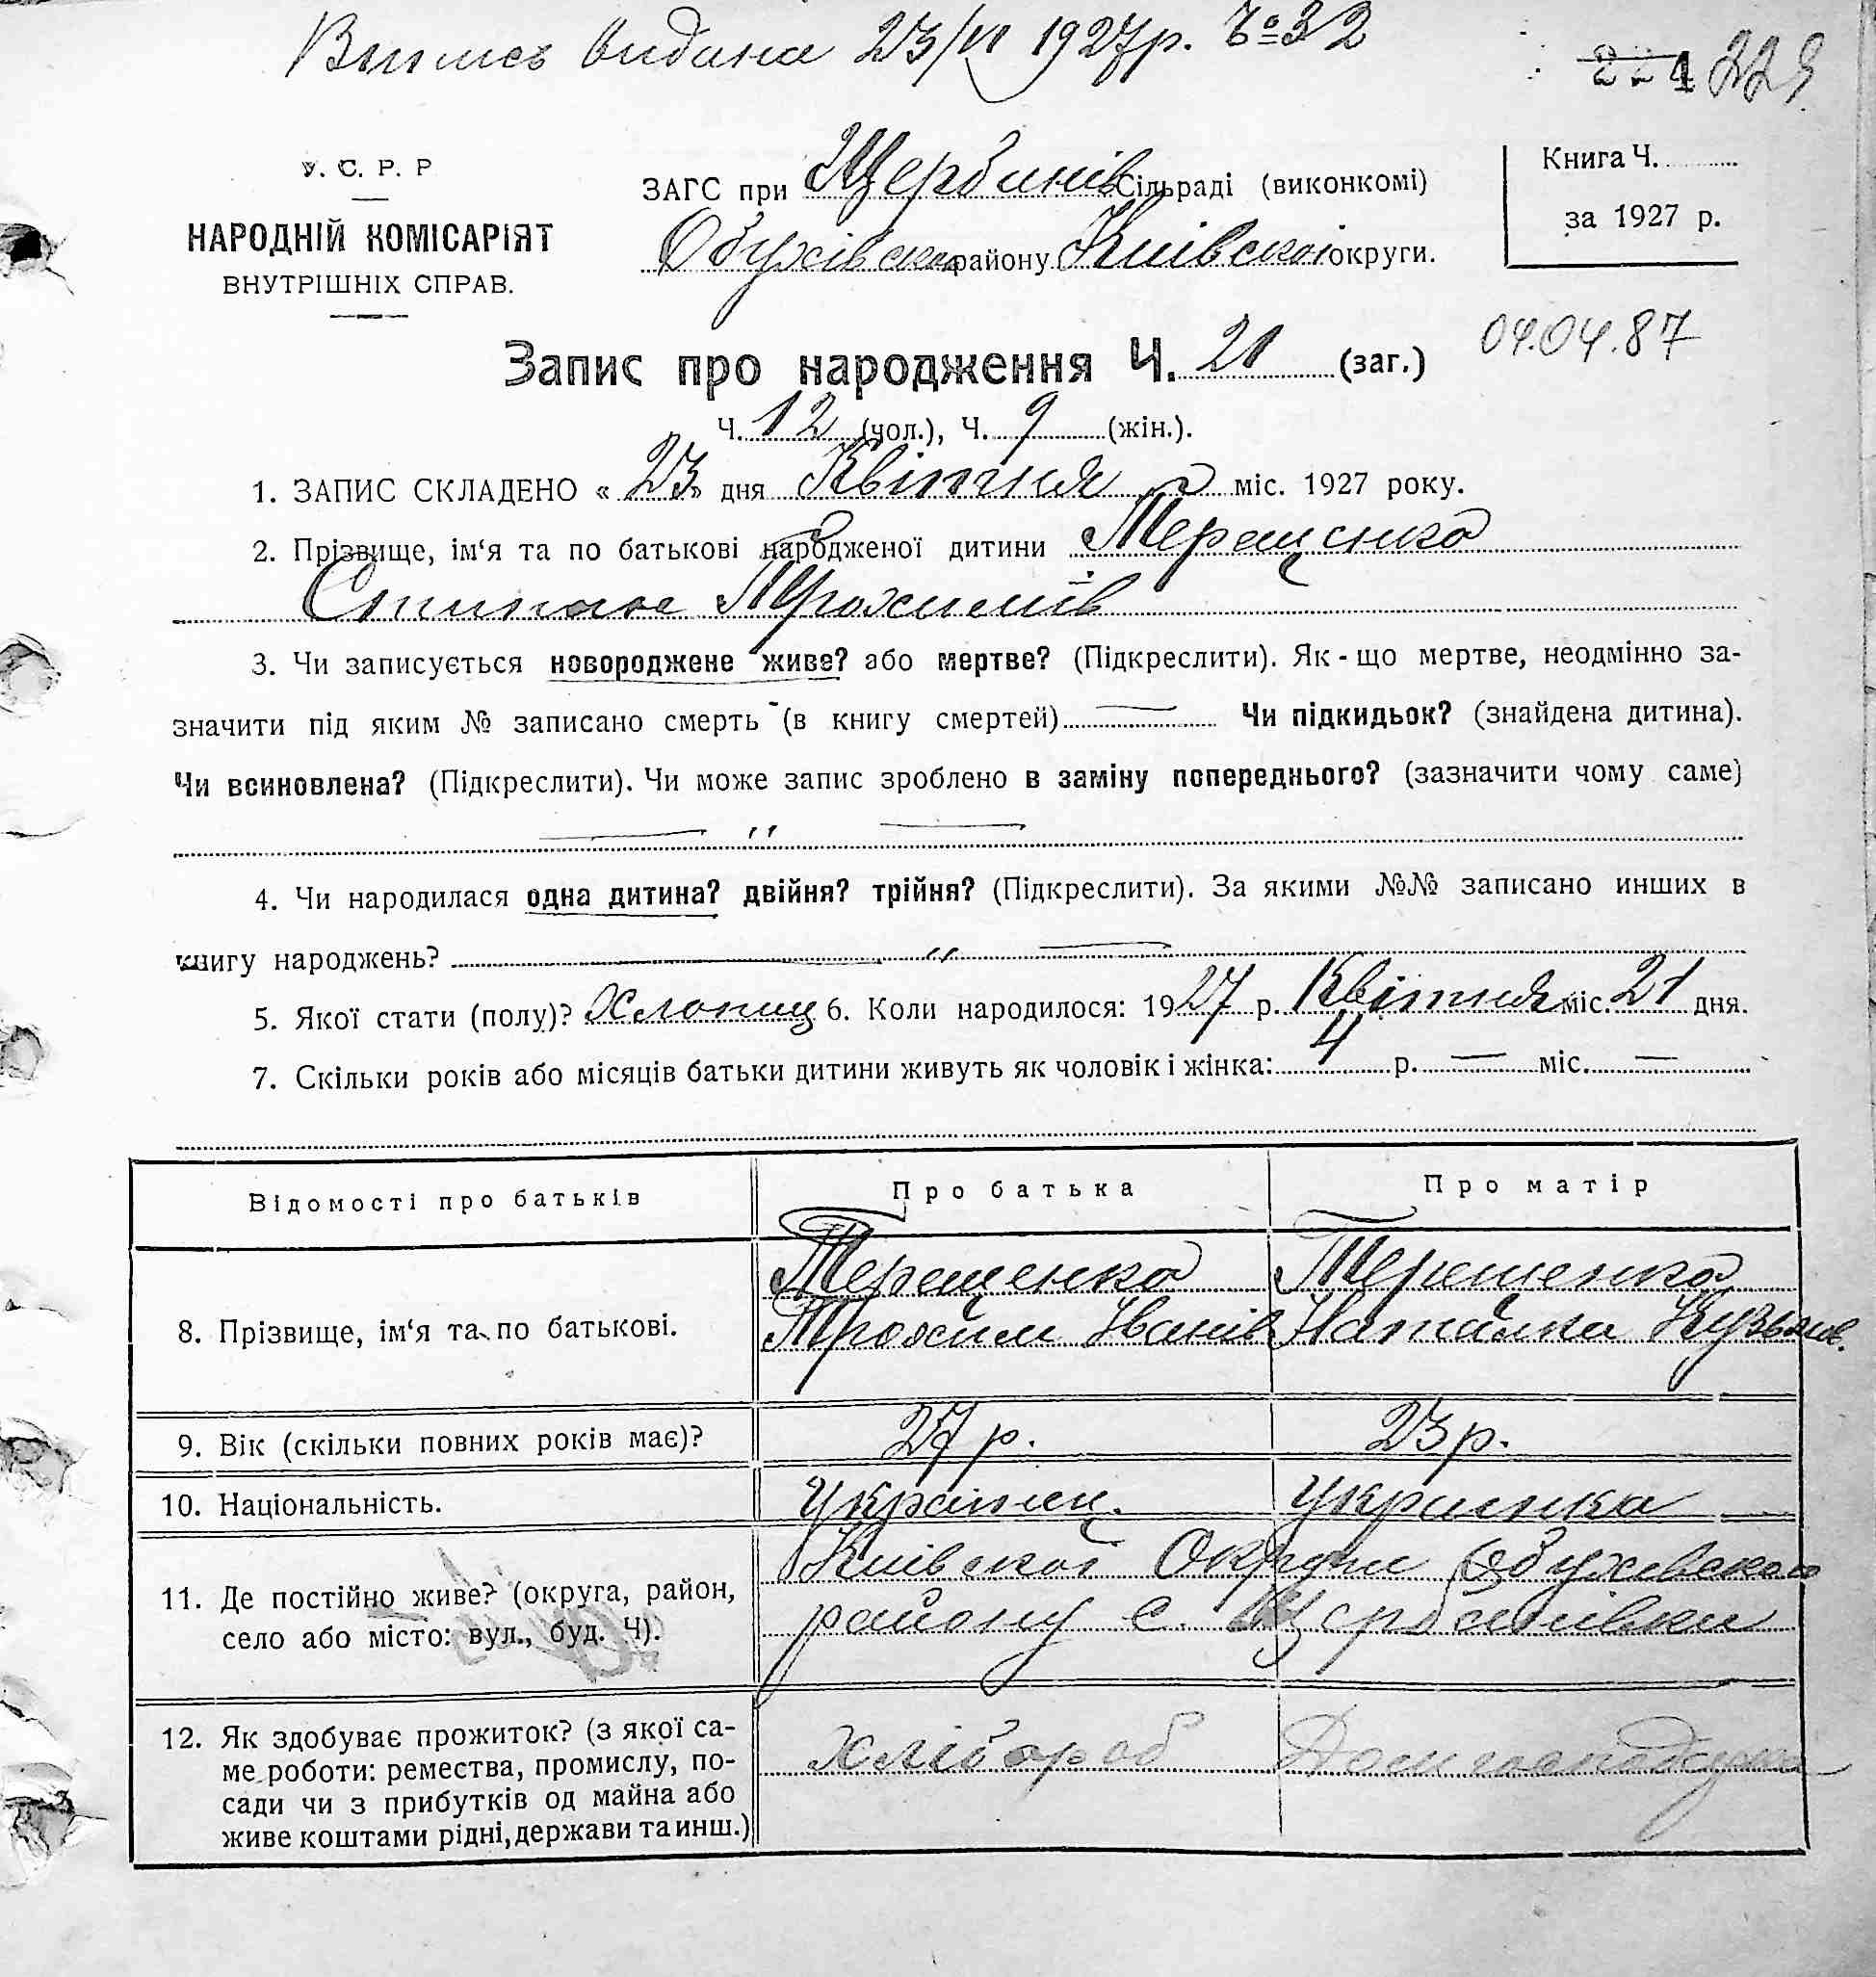 Випись видана 23/VI 1927р. Ч° 32
221 229
У. С. Р. Р
НАРОДНІЙ КОМІСАРІЯТ
ВНУТРІШНІХ СПРАВ.
ЗАГС при Щербанів Сільраді (виконкомі)
Обухівськ району Київскоі округи.
Книга Ч.
за 1927 р.
Запис про народження Ч. 21 (заг.)
04.04.87
Ч. 12 (чол.), Ч. 9 (жін.).
1. ЗАПИС СКЛАДЕНО « 23 » дня Квітня міс. 1927 року.
2. Прізвище, ім‘я та по батькові народженої дитини Терещенко
Степан Трохимів
3. Чи записується новороджене живе? або мертве? (Підкреслити). Як - що мертве, неодмінно за-
значити під яким № записано смерть (в книгу смертей) — Чи підкидьок? (знайдена дитина).
Чи всиновлена? (Підкреслити). Чи може запис зроблено в заміну попереднього? (зазначити чому саме)
— ,, —
4. Чи народилася одна дитина? двійня? трійня? (Підкреслити). За якими №№ записано инших в
книгу народжень? — ,, —
5. Якої стати (полу)? Хлопиц 6. Коли народилося: 1927 р. Квітня міс. 21 дня.
7. Скільки років або місяців батьки дитини живуть як чоловік і жінка: 4 р. — міс. —
Відомості про батьків Про батька Про матір
Терещенко Терещенко
8. Прізвище, ім‘я та по батькові. Трохим Іванів Наталка Кузьмов.
9. Вік (скільки повних років має)? 27 р. 23 р.
10. Національність. Украінец. Украінка
Київскоі Округи Обухівского
11. Де постійно живе? (округа, район,
село або місто: вул., буд. Ч). району с. Щербанівки
12. Як здобуває прожиток? (з якої са-
ме роботи: ремества, промислу, по-
сади чи з прибутків од майна або
живе коштами рідні, держави та инш.)
хлібороб Дом господарка